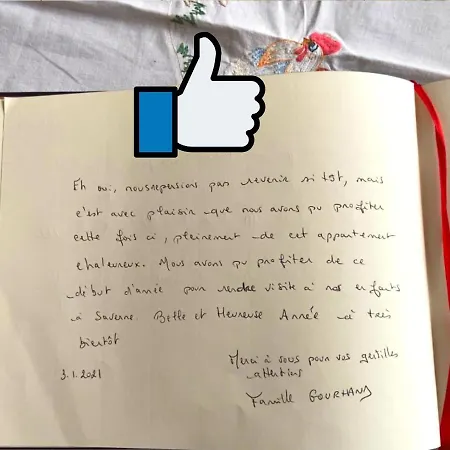 Eh oui, nous repensions pas revenir si tôt, mais
c'est avec plaisir que nous avons pu profiter
cette fois ci, pleinement de cet appartement
chaleureux. Nous avons pu profiter de ce
début d'année pour rendre visite à nos enfants
à Saverne. Belle et Heureuse Année à très
bientôt
Merci à vous pour vos gentilles
attentions
3.1.2021
Famille